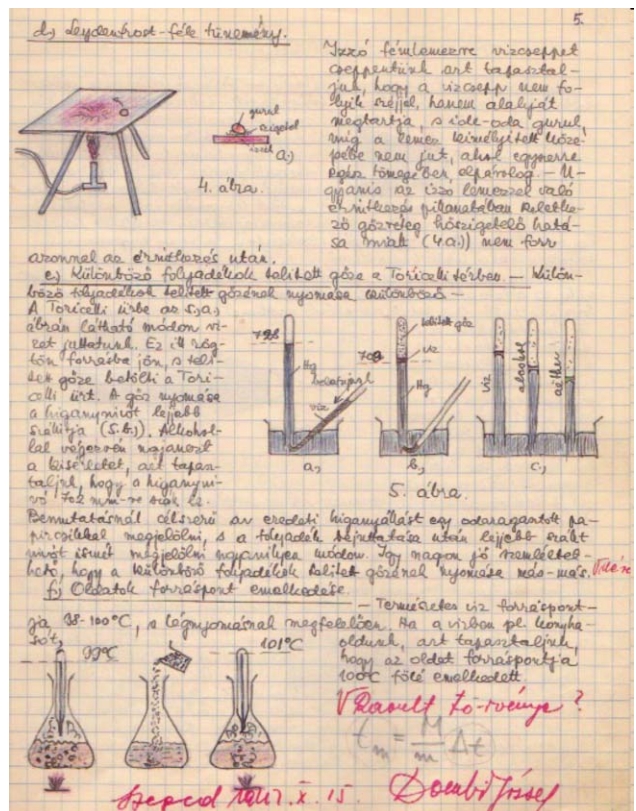 5.
d.) Leydenfrost-féle tünemény.
Izzó fémlemezre vizcseppet
cseppentünk azt tapasztal-
juk, hogy a vizcsepp nem fo-
lyik széjjel, hanem alakját
megtartja, s ide-oda gurul,
mig a lemez kimélyitett köze-
pébe nem jut, ahol egyszerre
egész tömegében elpárolog. — U-
gyanis az izzó lemezzel való
érintkezés pillanatában keletke-
ző gőzréteg hőszigetelő hatá-
sa miatt (4.a.)) nem forr
azonnal az érintkezés után.
gurul
szigetel
izzik
a.)
4. ábra.
e.) Különböző folyadékok telitett gőze a Toricelli térben. — Külön-
böző folyadékok telitett gőzének nyomása különböző —
A Toricelli űrbe az 5.a.)
ábrán látható módon vi-
zet juttatunk. Ez itt rög-
tön forrásba jön, s teli-
tett gőze betölti a Tori-
celli űrt. A gőz nyomása
a higanynivót lejjebb
szállitja (5.b.)). Alkohol-
lal végezvén ugyanezt
a kisérletet, azt tapasz-
taljuk, hogy a higanyni-
vó 702 mm-re száll le.
Hg
viz
a.)
telitett gőz
708
viz
Hg
b.)
viz
alkohol
aether
c.)
5. ábra.
Bemutatásnál célszerű az eredeti higanyállást egy odaragasztott pa-
pircsikkal megjelölni, s a folyadék bejuttatása után lejjebb szállt
nivót ismét megjelölni ugyanilyen módon. Igy nagyon jó szemléltet-
hető, hogy a különböző folyadékok telitett gőzének nyomása más-más.
f.) Oldatok forráspont emelkedése.
— Természetes viz forráspont-
ja 98-100°C, a légnyomásnak megfelelően. Ha a vizben pl. konyha-
sót
oldunk, azt tapasztaljuk,
hogy az oldat forráspontja
100°C fölé emelkedett.
99°C
101°C
Raoult törvénye?
Szeged 1947. X. 15.
Dombi József